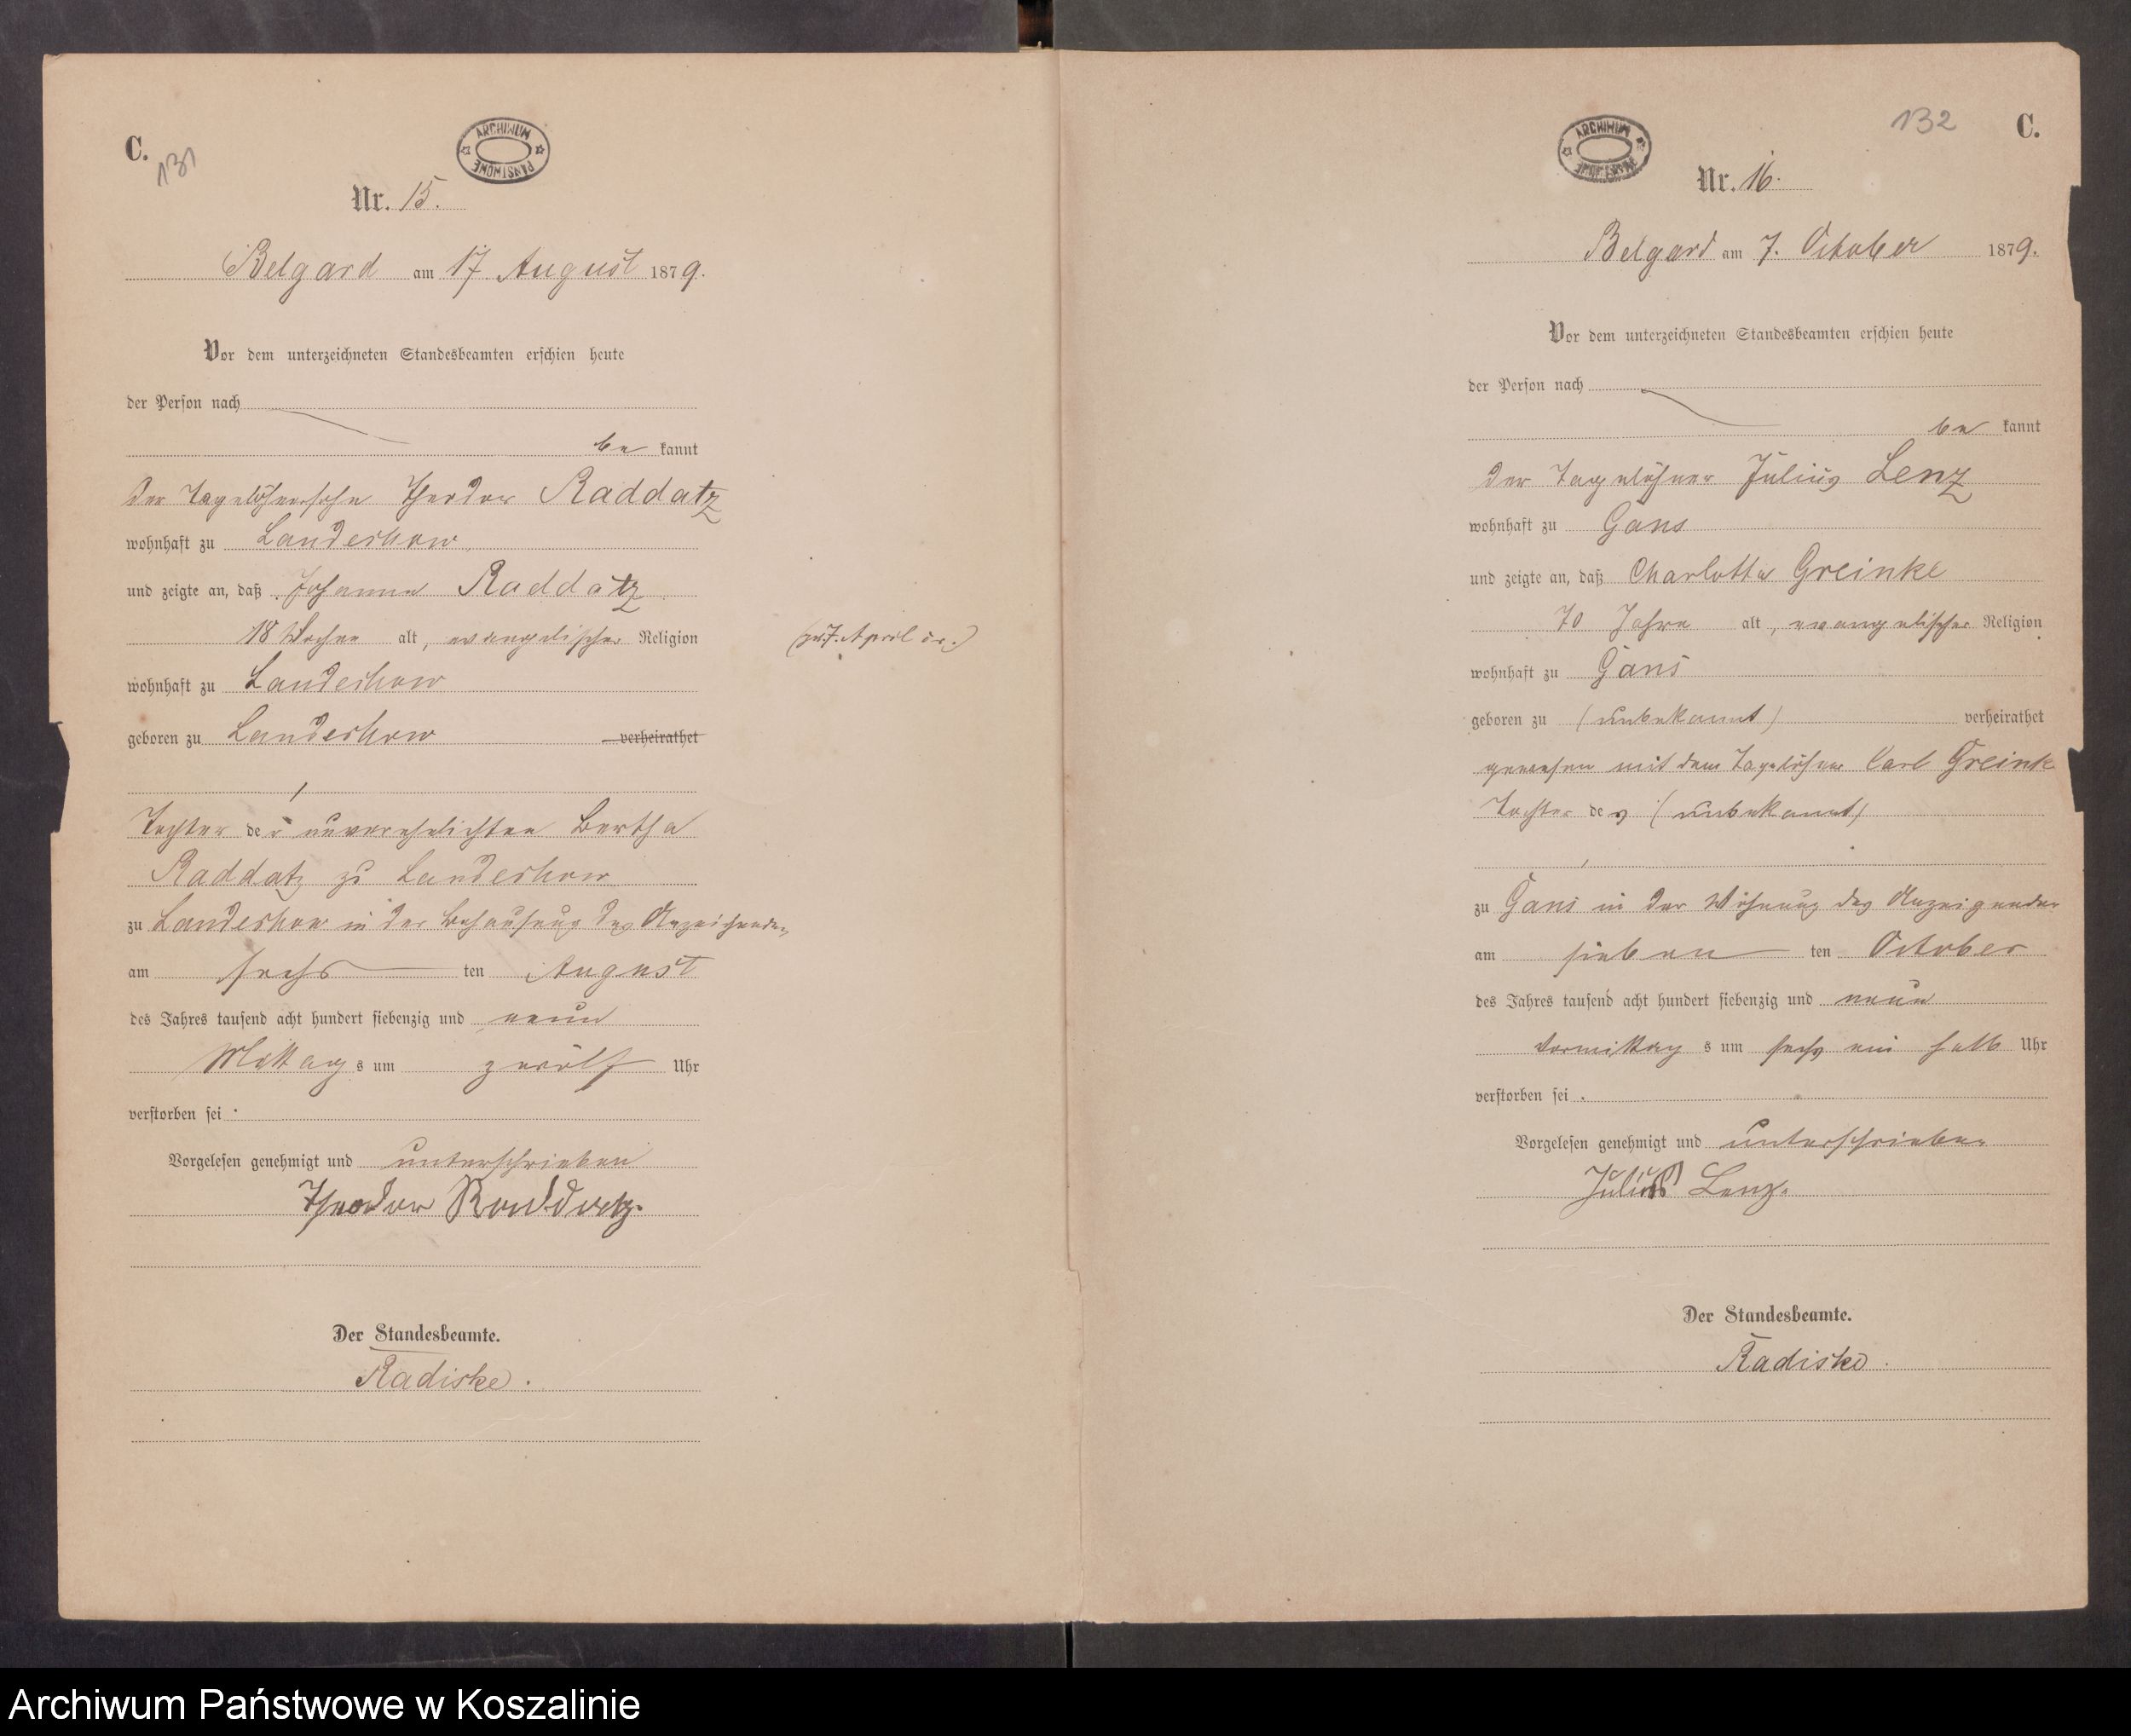 C.
131
ARCHIWUM PAŃSTWOWE
Nr. 15.
Belgard am 17 August 1879.
Vor dem unterzeichneten Standesbeamten erschien heute
der Person nach
be kannt
der Tagelöhnersohn Theodor Raddatz
wohnhaft zu Landechow
und zeigte an, daß Johanna Raddatz
18 Wochen alt, evangelischer Religion
April
wohnhaft zu Landechow
geboren zu Landechow verheirathet
Tochter der unverehelichten Bertha
Raddatz zu Landechow
zu Landechow in der Behausung des Anzeigenden
am sechs ten August
des Jahres tausend acht hundert siebenzig und neun
Mittag s um zwölf Uhr
verstorben sei.
Vorgelesen genehmigt und unterschrieben
Theodor Raddatz.
Der Standesbeamte.
Radiske.
ARCHIWUM PAŃSTWOWE
132
C.
Nr. 16.
Belgard am 7. October 1879.
Vor dem unterzeichneten Standesbeamten erschien heute
der Person nach
be kannt
der Tagelöhner Julius Lenz
wohnhaft zu Gans
und zeigte an, daß Charlotte Greinke
70 Jahre alt, evangelischer Religion
wohnhaft zu Gans
geboren zu (unbekannt) verheirathet
gewesen mit dem Tagelöhner Carl Greinke
Tochter des (unbekannt)
zu Gans in der Wohnung des Anzeigenden
am sieben ten October
des Jahres tausend acht hundert siebenzig und neun
Vormittag s um sechs ein halb Uhr
verstorben sei.
Vorgelesen genehmigt und unterschrieben
Julius Lenz.
Der Standesbeamte.
Radiske.
Archiwum Państwowe w Koszalinie